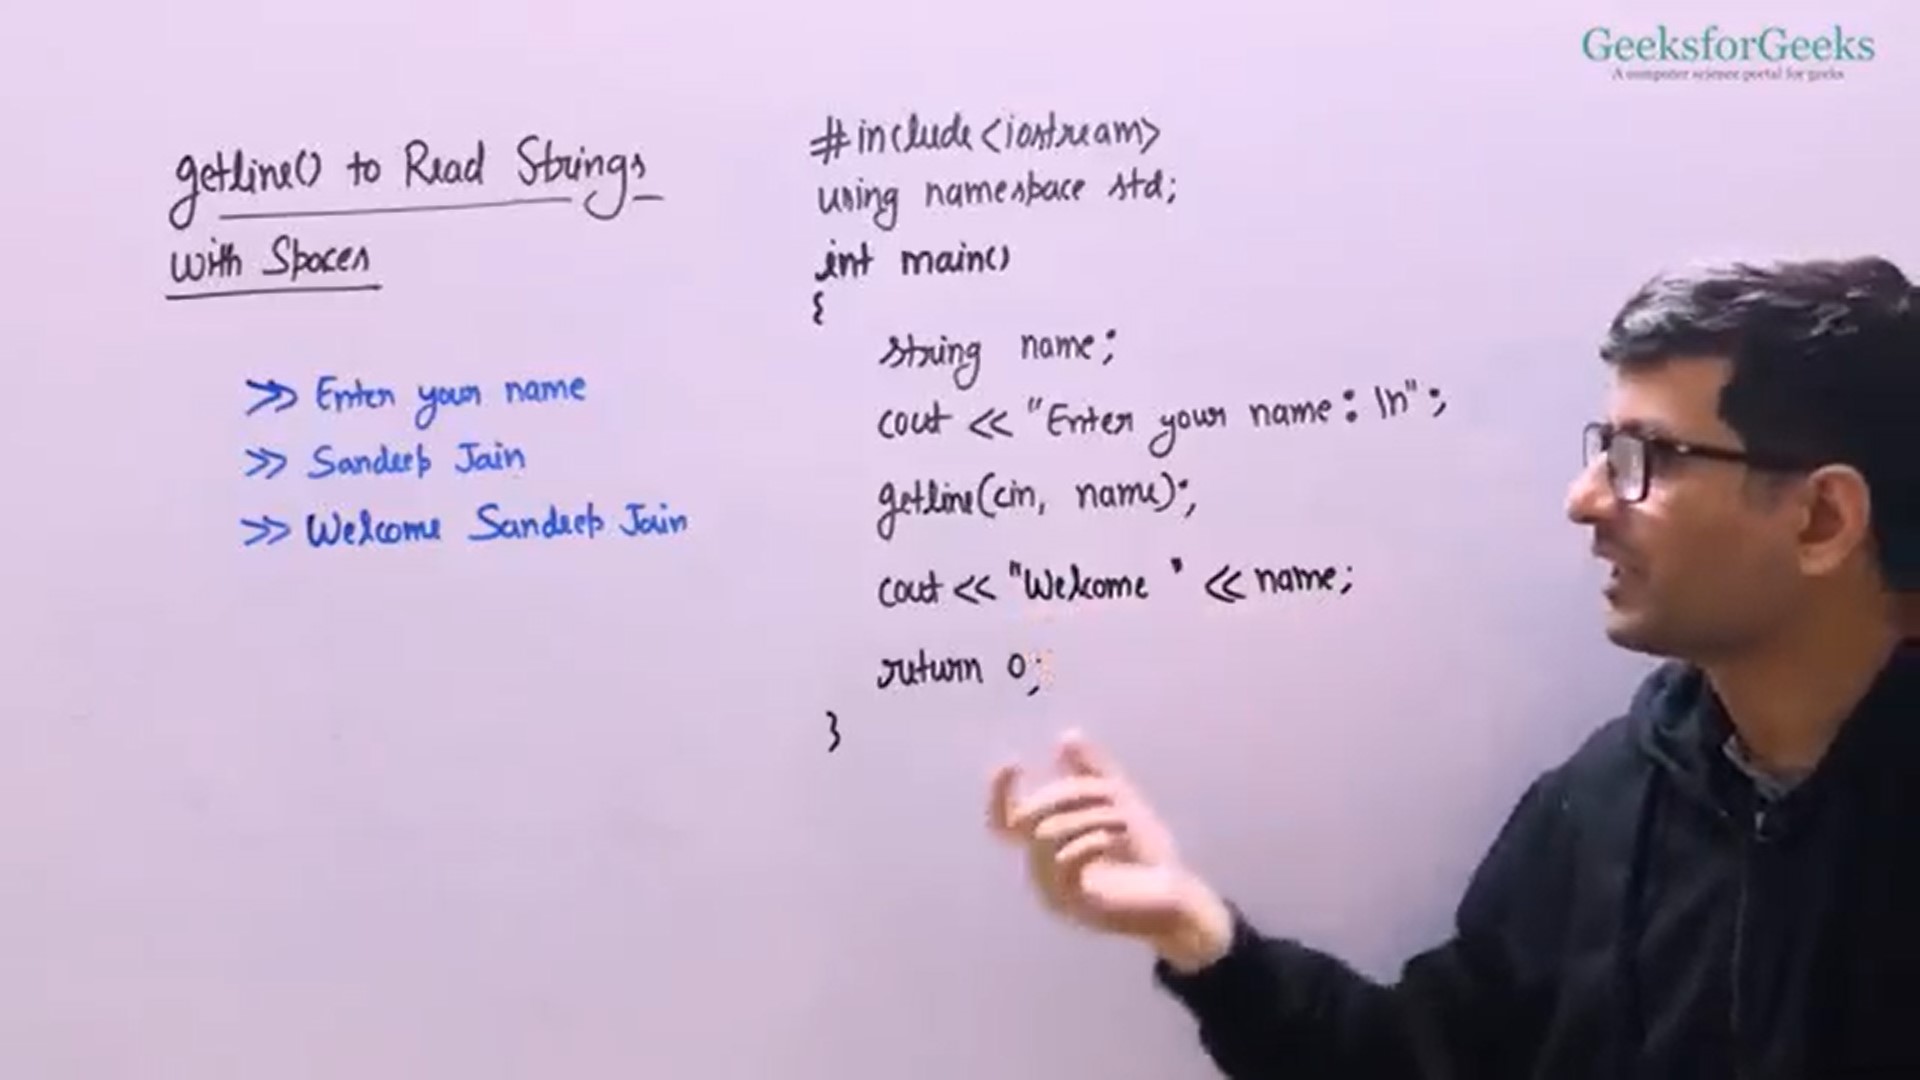 GeeksforGeeks
A computer science portal for geeks
getline() to Read Strings
with Spaces
>> Enter your name
>> Sandeep Jain
>> Welcome Sandeep Jain
#include<iostream>
using namespace std;
int main()
{
string name;
cout << "Enter your name: \n";
getline(cin, name);
cout << "Welcome " << name;
return 0;
}